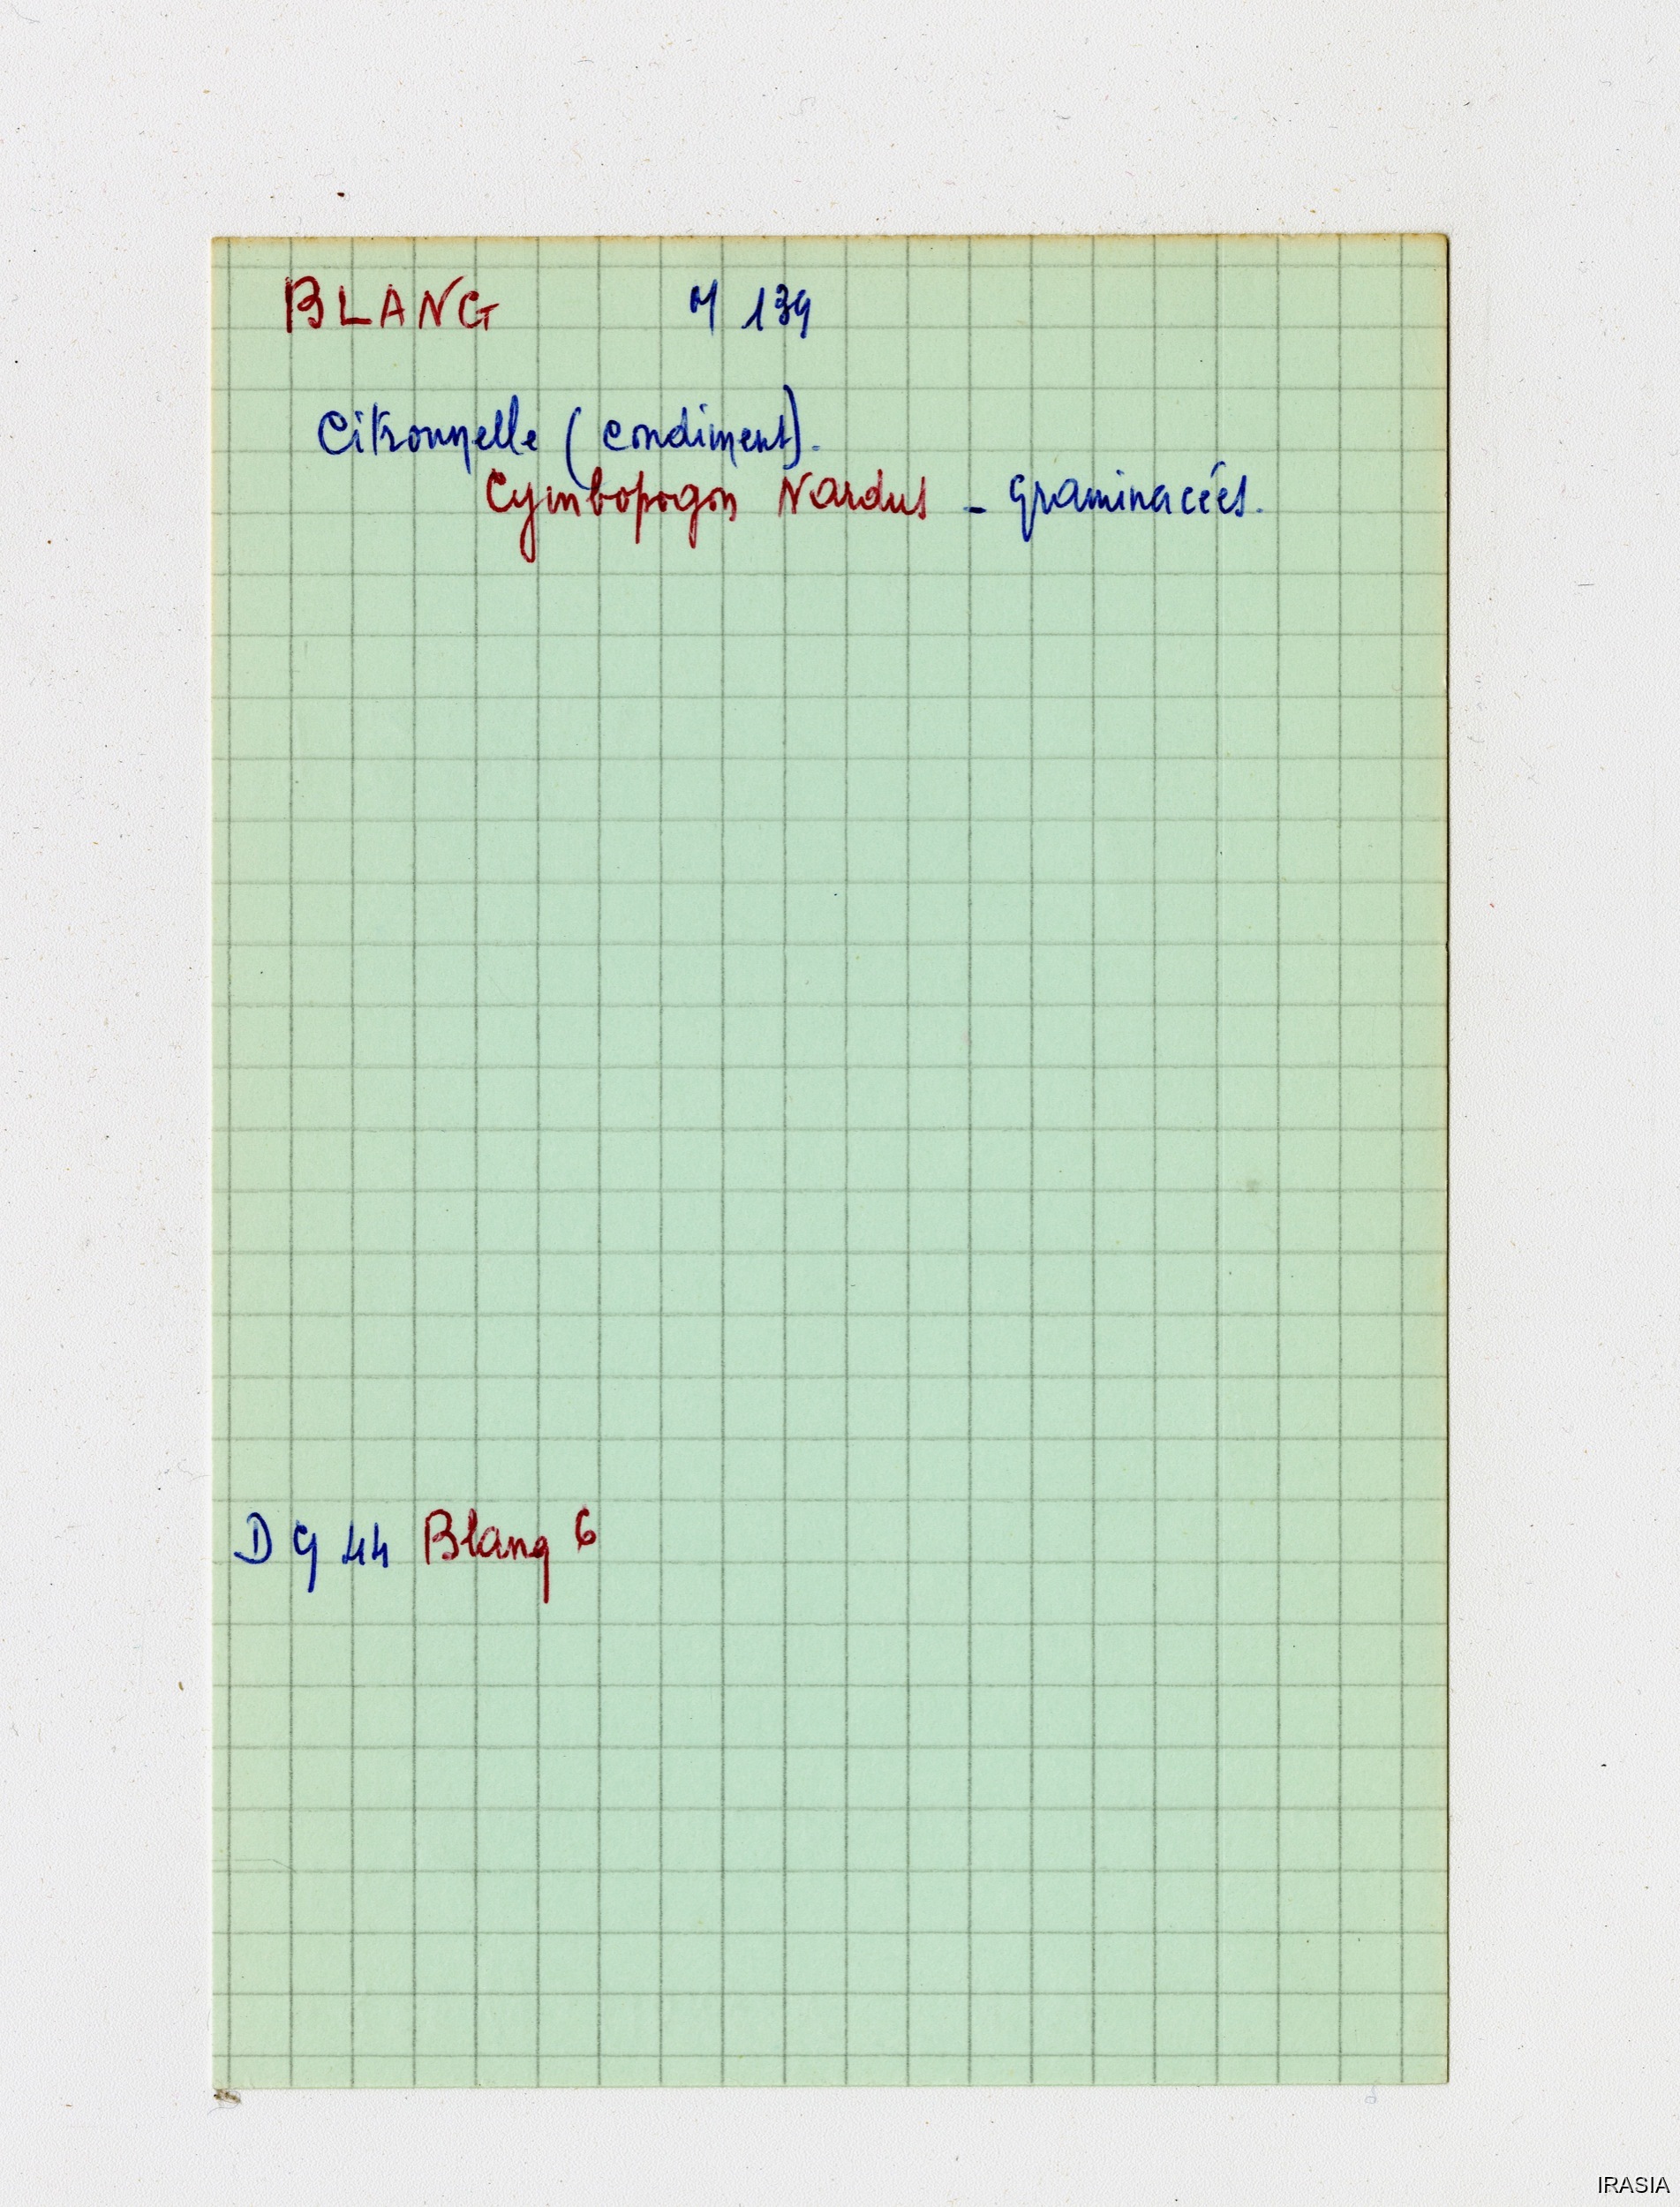 BLANG M 139
Citronnelle (condiment).
Cymbopogon Nardus - Graminacées.
D G 44 Blang 6
IRASIA